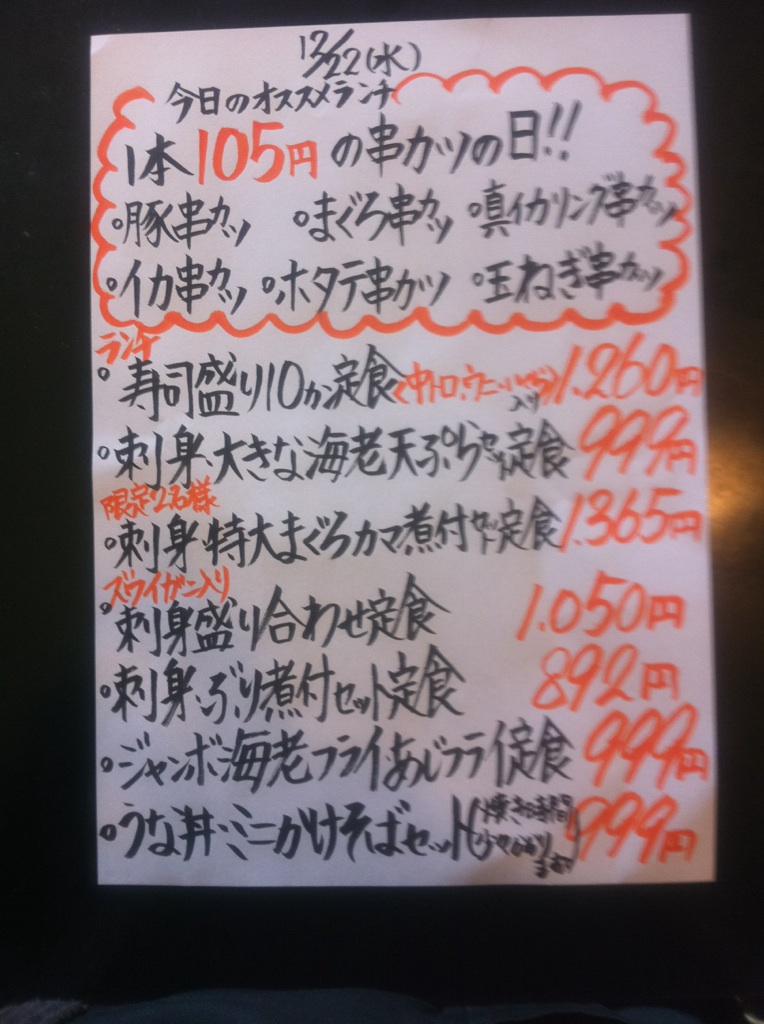 12/22(水)
今日のオススメランチ
1本105円の串カツの日!!
○豚串カツ ○まぐろ串カツ ○真イカリング串カツ
○イカ串カツ ○ホタテ串カツ ○玉ねぎ串カツ
ランチ
○寿司盛り10カン定食(中トロ、ウニ、いくら入り) 1.260円
○刺身、大きな海老天ぷらセット定食 999円
限定2名様
○刺身、特大まぐろカマ煮付セット定食 1.365円
ズワイガニ入り
○刺身盛り合わせ定食 1.050円
○刺身、ぶり煮付セット定食 892円
○ジャンボ海老フライ、あじフライ定食 999円
○うな丼・ミニかけそばセット(焼き時間少々かかります) 999円